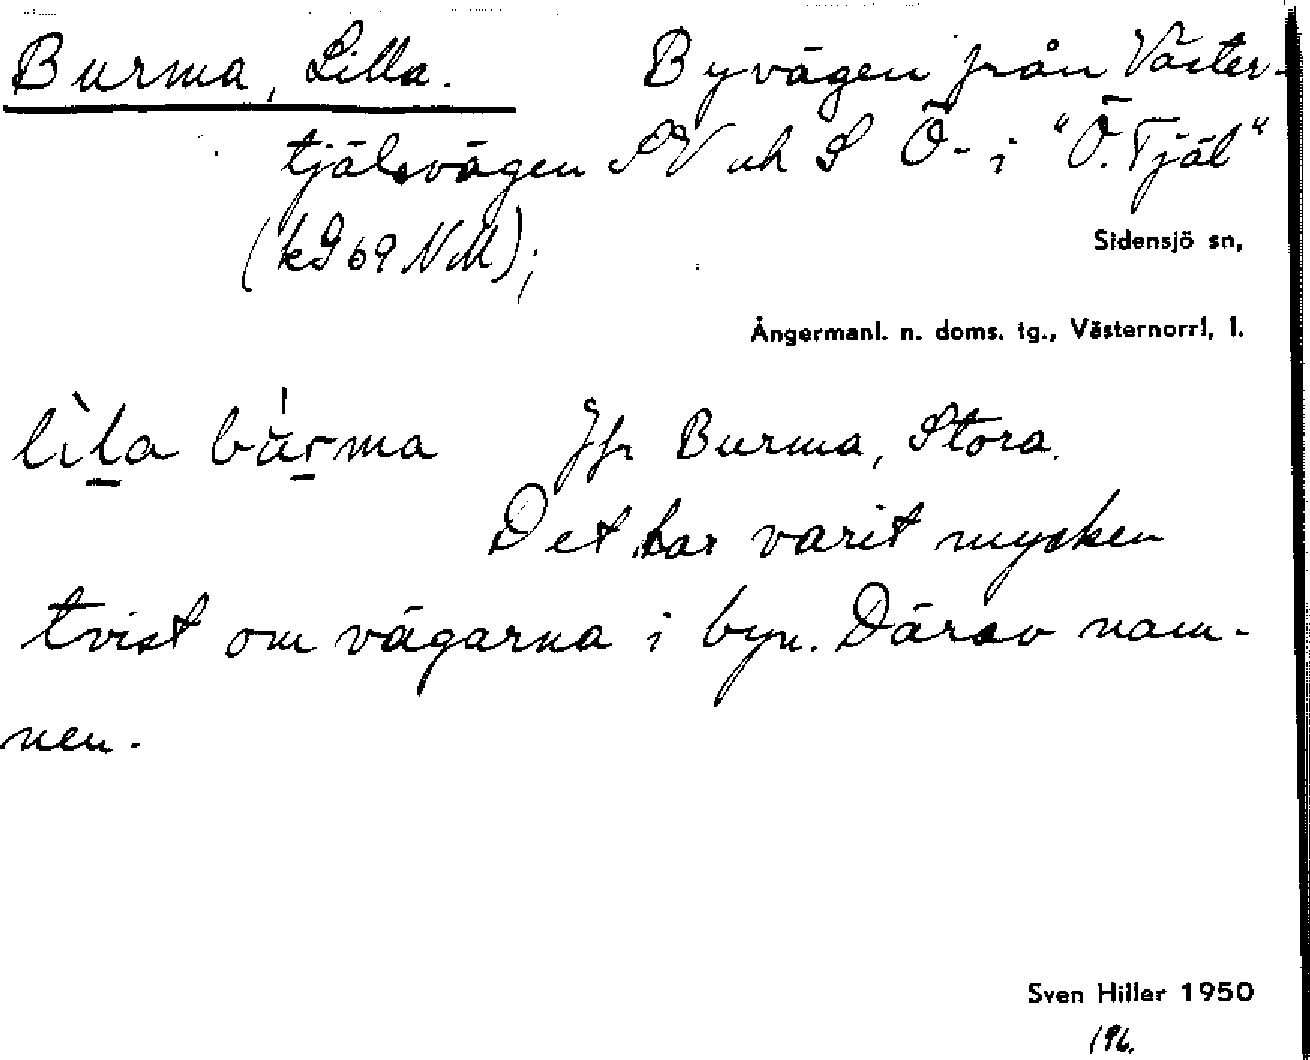 Burma, Lilla. Byvägen från Väster-
tjälsvägen SV och S Ö- i "Ö. Tjäl"
(kG 69 NM);
Sidensjö sn,
Ångermanl. n. doms. tg., Västernorrl, l.
lìla bu̇rma Jfr Burma, Stora.
Det har varit mycken
tvist om vägarna i byn. Därav nam-
nen.
Sven Hiller 1950
196.